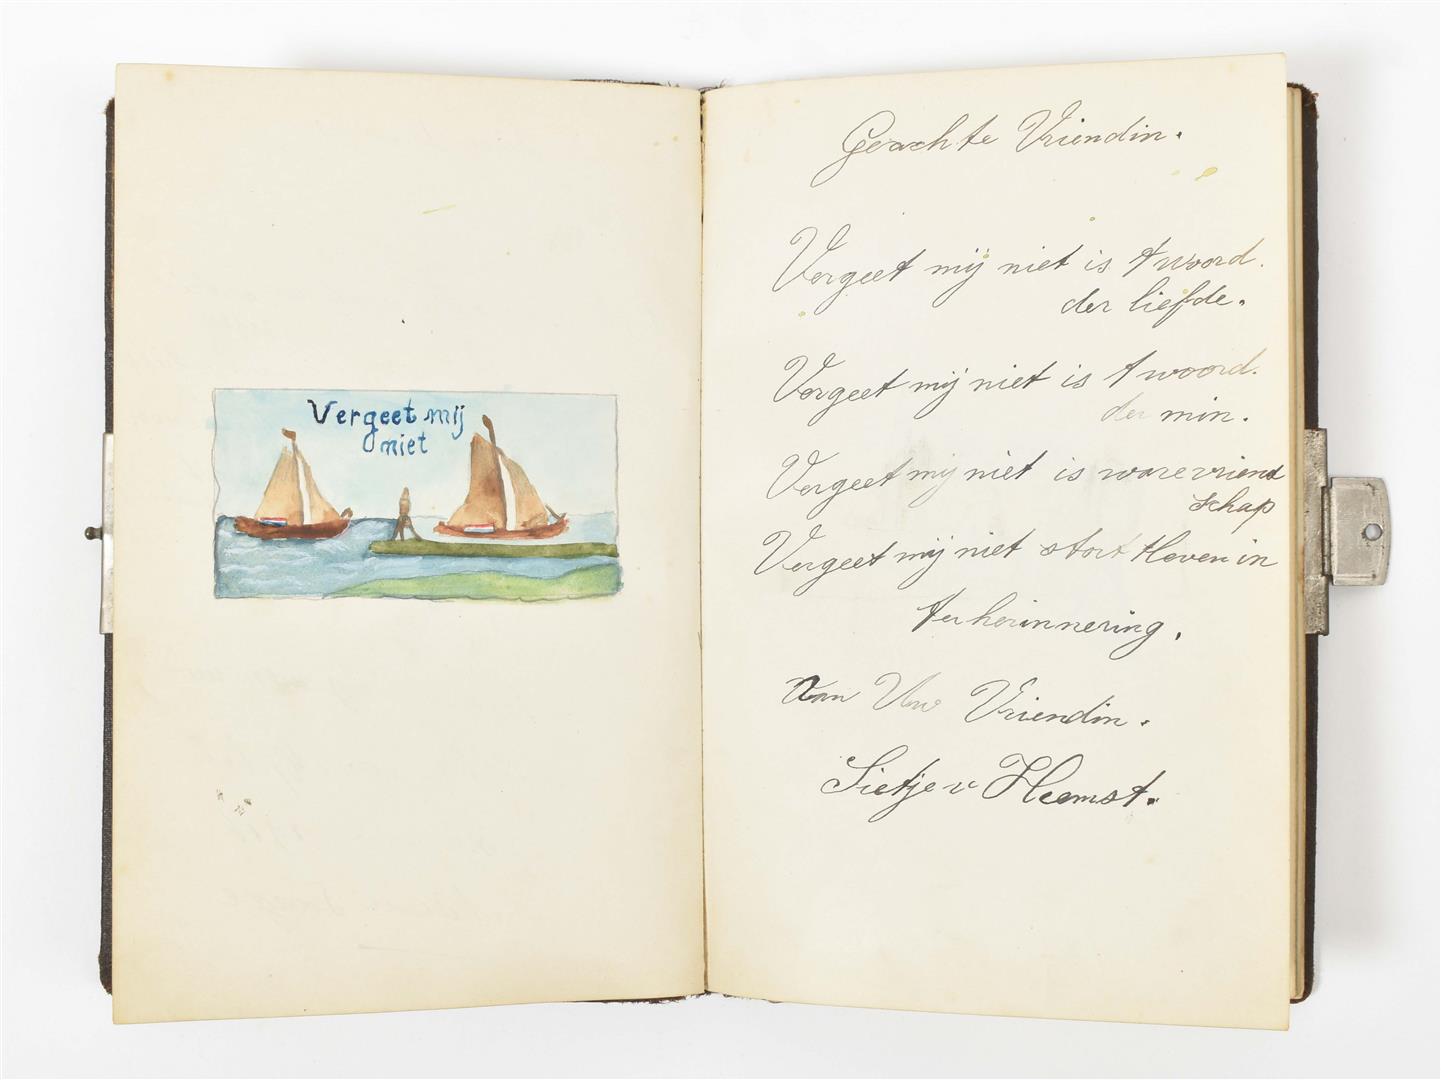 Vergeet mij
niet
Geachte Vriendin.
Vergeet mij niet is t woord.
der liefde.
Vergeet mij niet is t woord.
der min.
Vergeet mij niet is ware vriend
schap
Vergeet mij niet stort tleven in
ter herinnering.
van Uw Vriendin.
Sietje v Heemst.